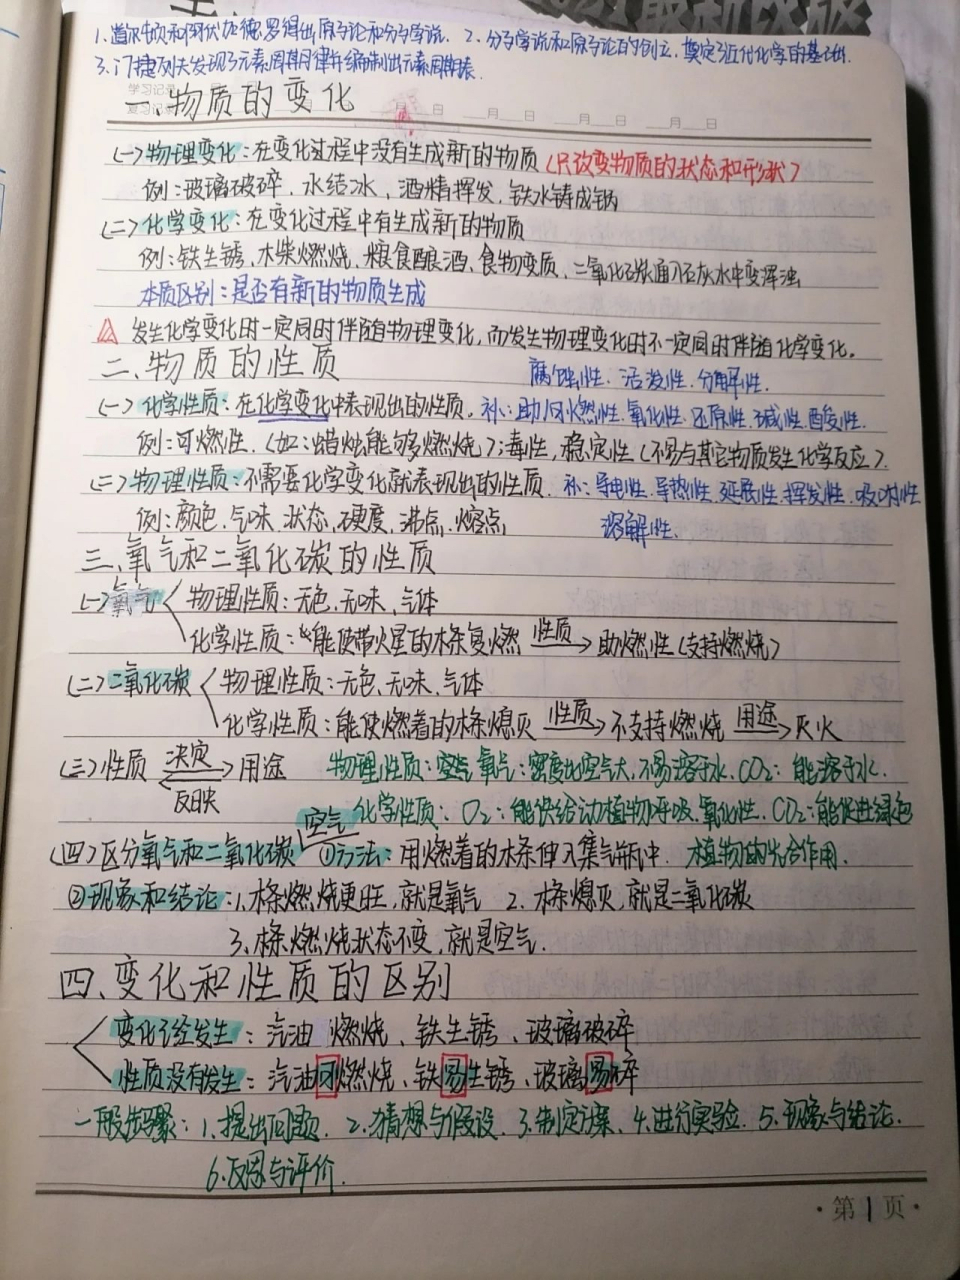 1.道尔顿和阿伏加德罗得出原子论和分子学说. 2.分子学说和原子论的创立,奠定了近代化学的基础.
3.门捷列夫发现了元素周期律并编制出元素周期表.
学习记录
复习记录 月 日 月 日 月 日 月 日
一.物质的变化
(一)物理变化:在变化过程中没有生成新的物质(只改变物质的状态和形状)
例:玻璃破碎、水结冰、酒精挥发、铁水铸成锅
(二)化学变化:在变化过程中有生成新的物质
例:铁生锈、木柴燃烧、粮食酿酒、食物变质、二氧化碳通入石灰水中变浑浊
本质区别:是否有新的物质生成
发生化学变化时一定同时伴随物理变化,而发生物理变化时不一定同时伴随化学变化.
二.物质的性质
腐蚀性.活泼性.分解性.
(一)化学性质:在化学变化中表现出的性质. 补:助(可)燃性.氧化性.还原性.碱性.酸性.
例:可燃性.(如:蜡烛能够燃烧);毒性,稳定性(不易与其它物质发生化学反应).
(二)物理性质:不需要化学变化就表现出的性质. 补:导电性.导热性.延展性.挥发性.吸附性
例:颜色.气味.状态.硬度.沸点.熔点 溶解性.
三.氧气和二氧化碳的性质
(一)氧气 物理性质:无色.无味.气体
化学性质:能使带火星的木条复燃 性质 助燃性(支持燃烧)
(二)二氧化碳 物理性质:无色、无味、气体
化学性质:能使燃着的木条熄灭 性质 不支持燃烧 用途 灭火
(三)性质 决定 用途 物理性质: 氧气:密度比空气大,不易溶于水.CO₂:能溶于水.
反映
化学性质:O₂:能供给动植物呼吸.氧化性.CO₂:能促进绿色
空气
(四)区分氧气和二氧化碳 ①方法:用燃着的木条伸入集气瓶中. 植物的光合作用.
②现象和结论:1.木条燃烧更旺,就是氧气 2.木条熄灭,就是二氧化碳
3.木条燃烧状态不变,就是空气.
四.变化和性质的区别
变化已经发生:汽油燃烧、铁生锈、玻璃破碎
性质没有发生:汽油可燃烧、铁易生锈、玻璃易碎
一般步骤:1.提出问题. 2.猜想与假设. 3.制定方案. 4.进行实验. 5.现象与结论.
6.反思与评价.
·第1页·